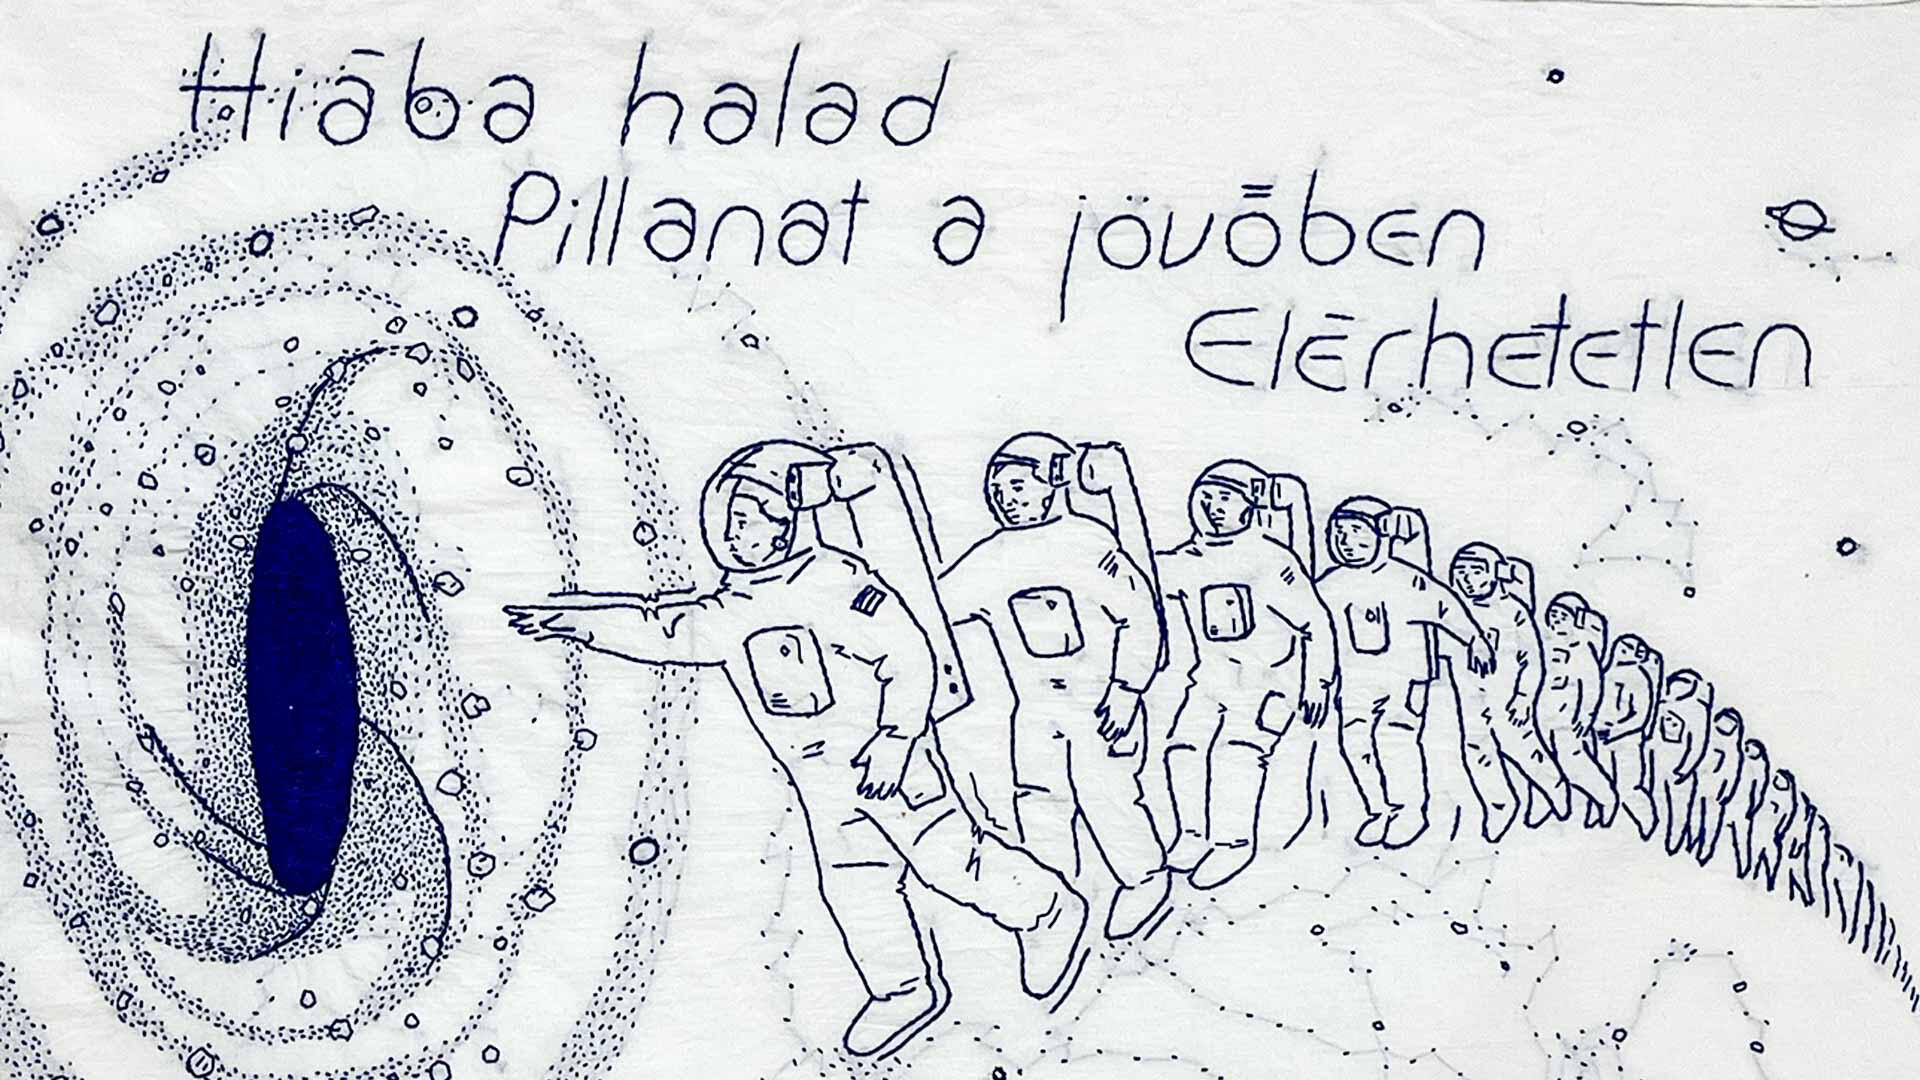 Hiába halad
Pillanat a jövőben
Elérhetetlen